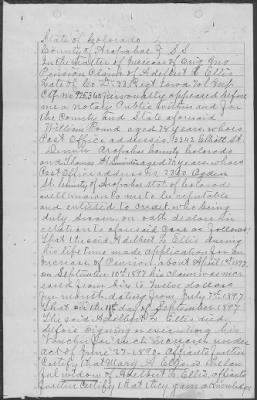 State of Colorado
County of Arapahoe } S.S
In the matter of Increase of Orig Inv
Pension Claim of Adelbert L. Ellis
late of Co D. 33 Regt Iowa Vol Inf
Ctf No personally appeared before
me a Notary Public within and for
the County and State aforesaid
William Pound aged years, whose
Post Office address is, 3342 Elliott St.
Denver Arapahoe County Colorado
and Thomas H. aged years, whose
Post office address is, Ogden
St. County of Arapahoe State of Colorado
well known to me to be reputable
and entitled to credit who being
duly sworn on oath declare in
relation to aforesaid case as follows:
That the said Adelbert L Ellis during
his life time made application for an
increase of Pension about April 1st 1897
on September 10th 1897 his claim was incr
eased from Six to Twelve dollars
per month dating from July 7th 1897
That on the day of September 1897
The said Adelbert L. Ellis died
before signing or executing his
Voucher for such increase under
act of June 27. 1890. Affiants further
Certify that Mary A Ellis is the law
ful widow of Adelbert L. Ellis, affiants
further Certify that they